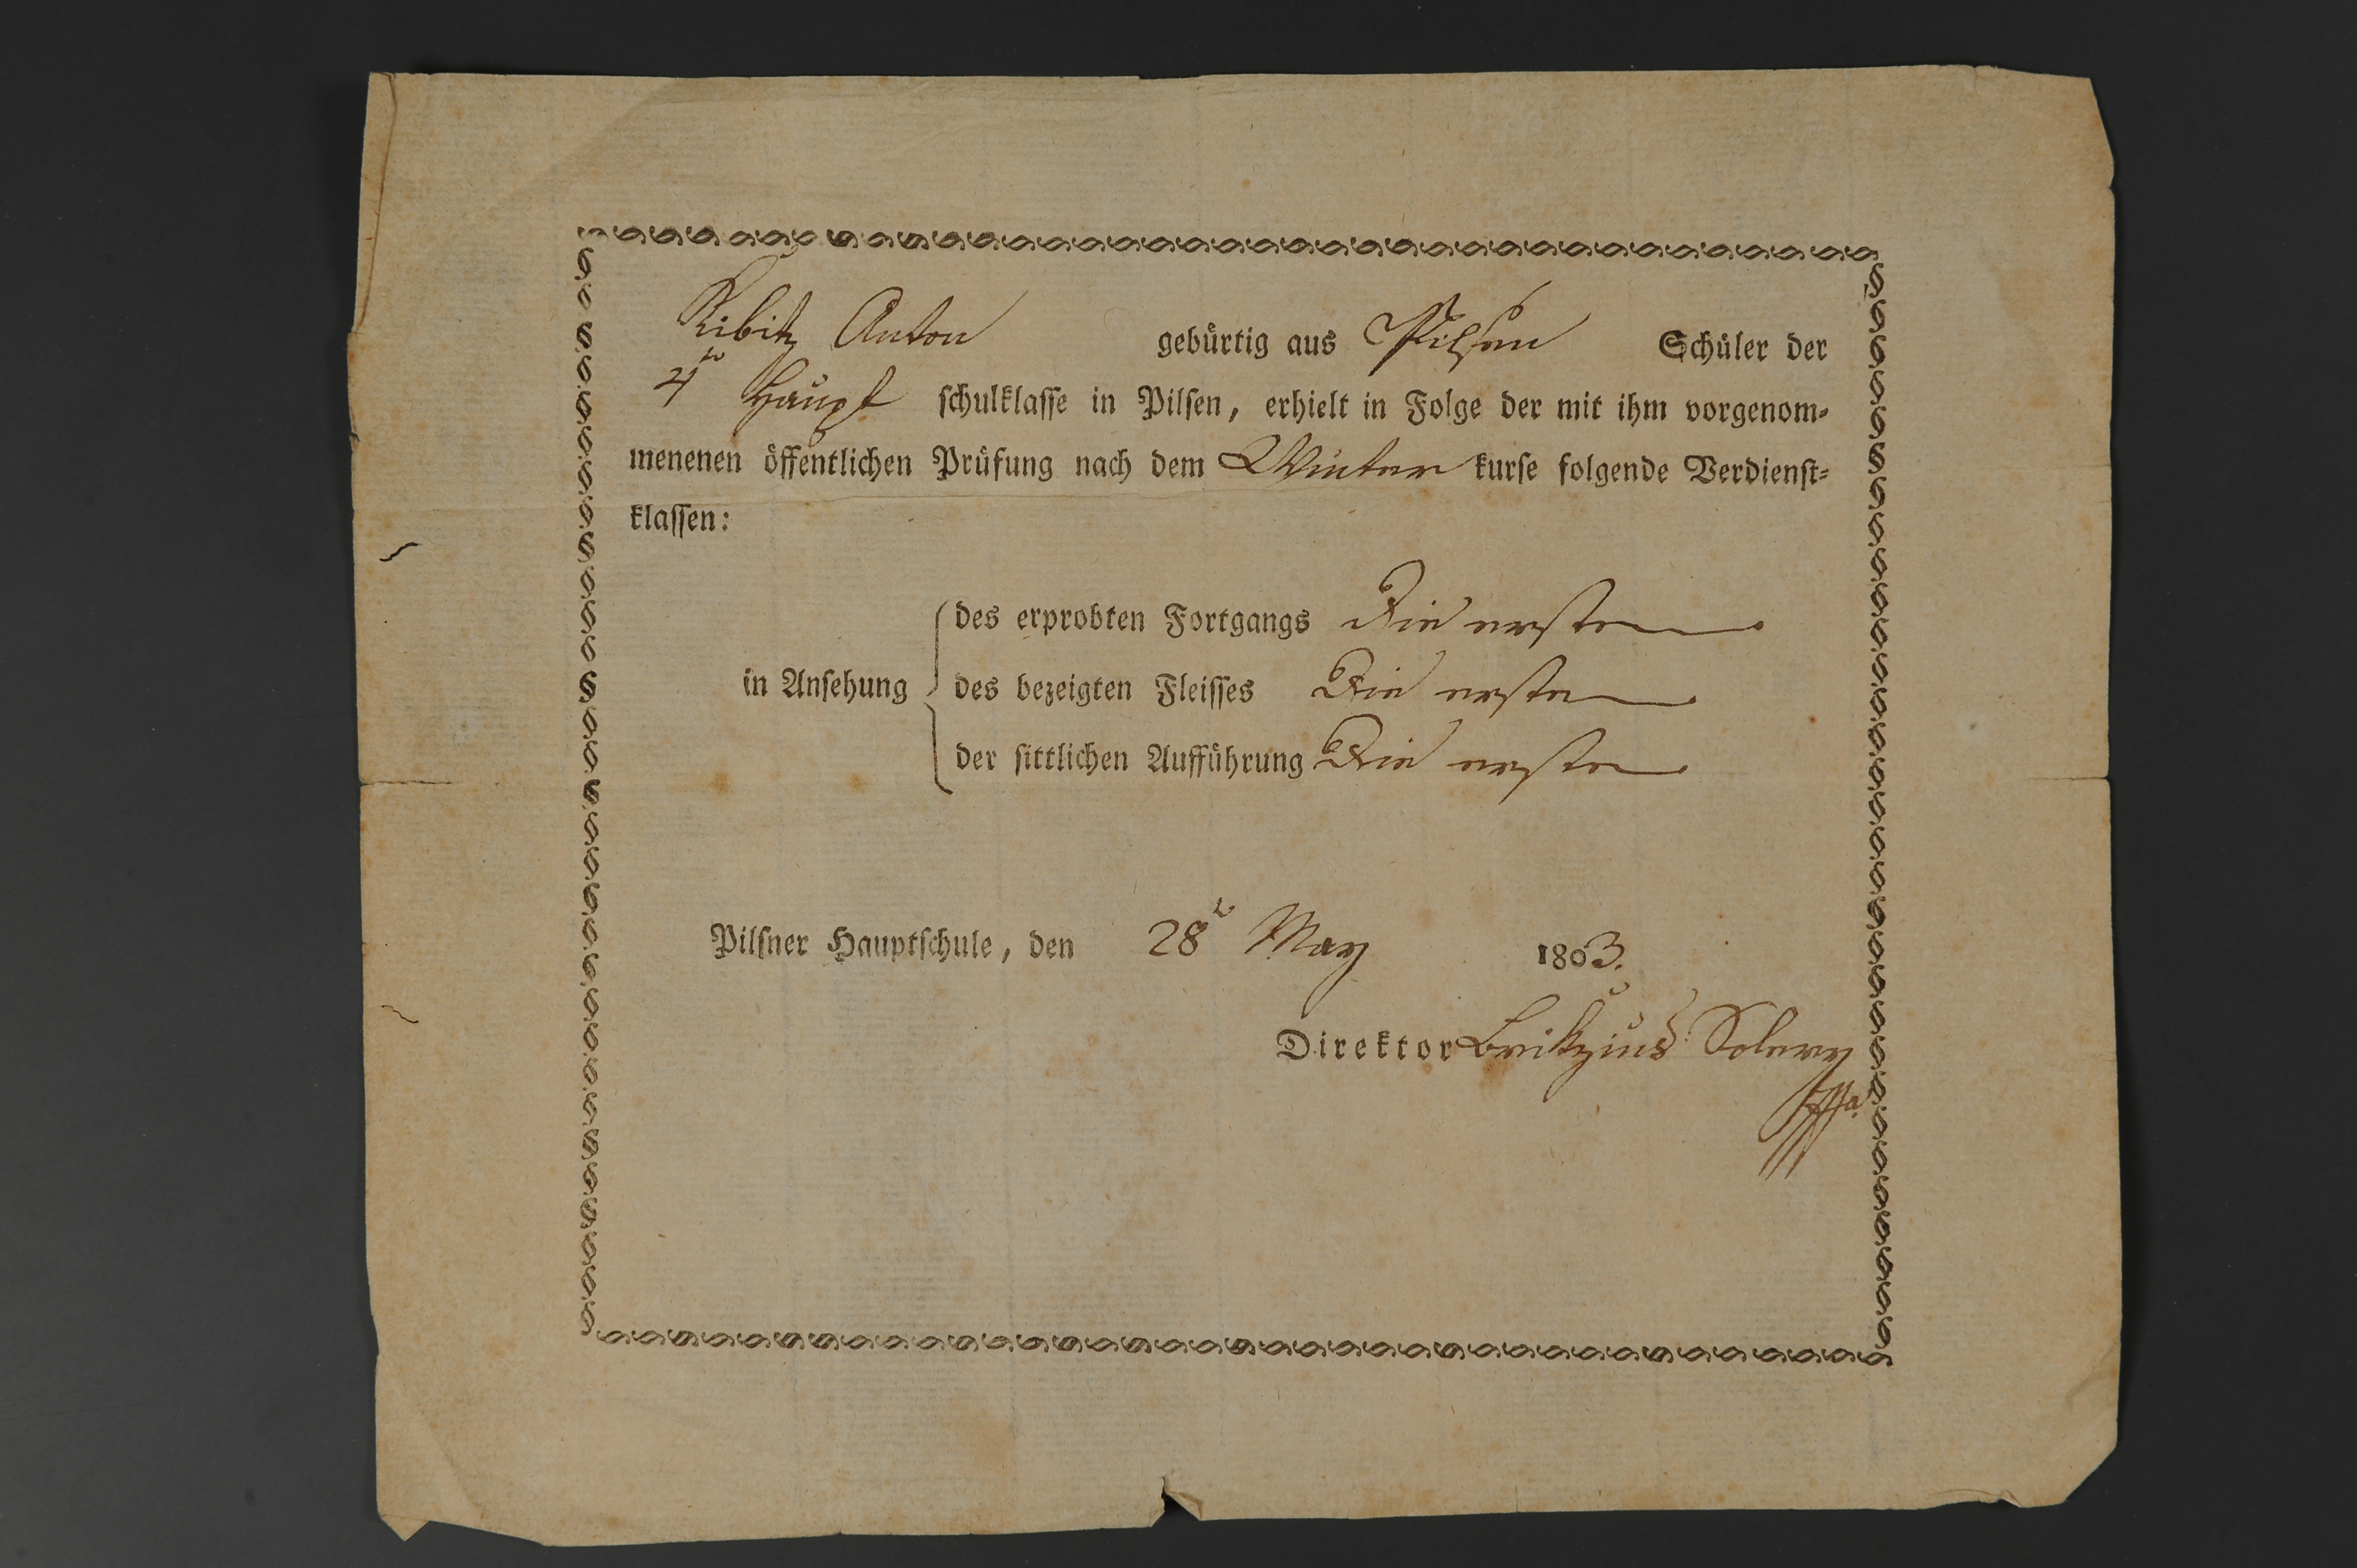 Kibitz Anton gebürtig aus Pilsen Schüler der
4te Haupt schulklasse in Pilsen, erhielt in Folge der mit ihm vorgenom-
menenen öffentlichen Prüfung nach dem Winter kurse folgende Verdienst-
klassen:
des erprobten Fortgangs Die erste
in Ansehung des bezeigten Fleisses Die erste
der sittlichen Aufführung Die erste
Pilsner Hauptschule, den 28t May 1803.
Direktor Brikzius Solery